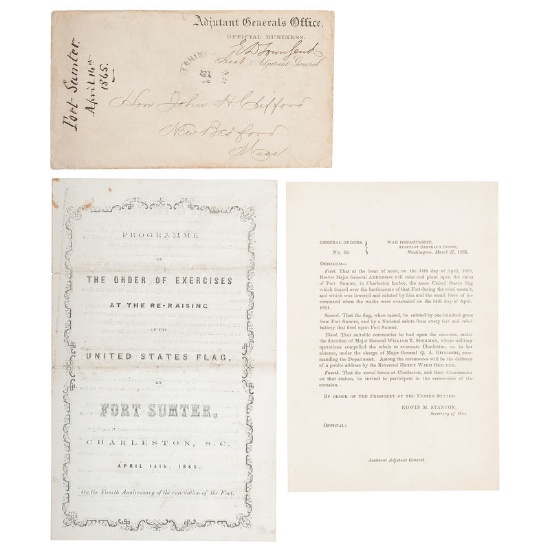 Adjutant Generals Office,
OFFICIAL BUSINESS.
E D Townsend
Adjutant General
Fort Sumter.
April 14th
1865.
Hon John H Clifford
New Bedford
Mass
PROGRAMME
OF
THE ORDER OF EXERCISES
AT THE RE-RAISING
OF THE
UNITED STATES FLAG,
ON
FORT SUMTER,
CHARLESTON, S.C.
APRIL 14th, 1865,
On the Fourth Anniversary of the evacuation of the Fort.
GENERAL ORDERS,
No. 50.
WAR DEPARTMENT,
ADJUTANT GENERAL'S OFFICE,
Washington, March 27, 1865.
ORDERED—
First. That at the hour of noon, on the 14th day of April, 1865,
Brevet Major General ANDERSON will raise and plant upon the ruins
of Fort Sumter, in Charleston harbor, the same United States flag
which floated over the battlements of that Fort during the rebel assault,
and which was lowered and saluted by him and the small force of his
command when the works were evacuated on the 14th day of April,
1861.
Second. That the flag, when raised, be saluted by one hundred guns
from Fort Sumter, and by a National salute from every fort and rebel
battery that fired upon Fort Sumter.
Third. That suitable ceremonies be had upon the occasion, under
the direction of Major General WILLIAM T. SHERMAN, whose military
operations compelled the rebels to evacuate Charleston, or, in his
absence, under the charge of Major General Q. A. GILLMORE, com-
manding the Department. Among the ceremonies will be the delivery
of a public address by the Reverend HENRY WARD BEECHER.
Fourth. That the naval forces at Charleston, and their Commander
on that station, be invited to participate in the ceremonies of the
occasion.
BY ORDER OF THE PRESIDENT OF THE UNITED STATES:
EDWIN M. STANTON,
Secretary of War.
OFFICIAL:
Assistant Adjutant General.